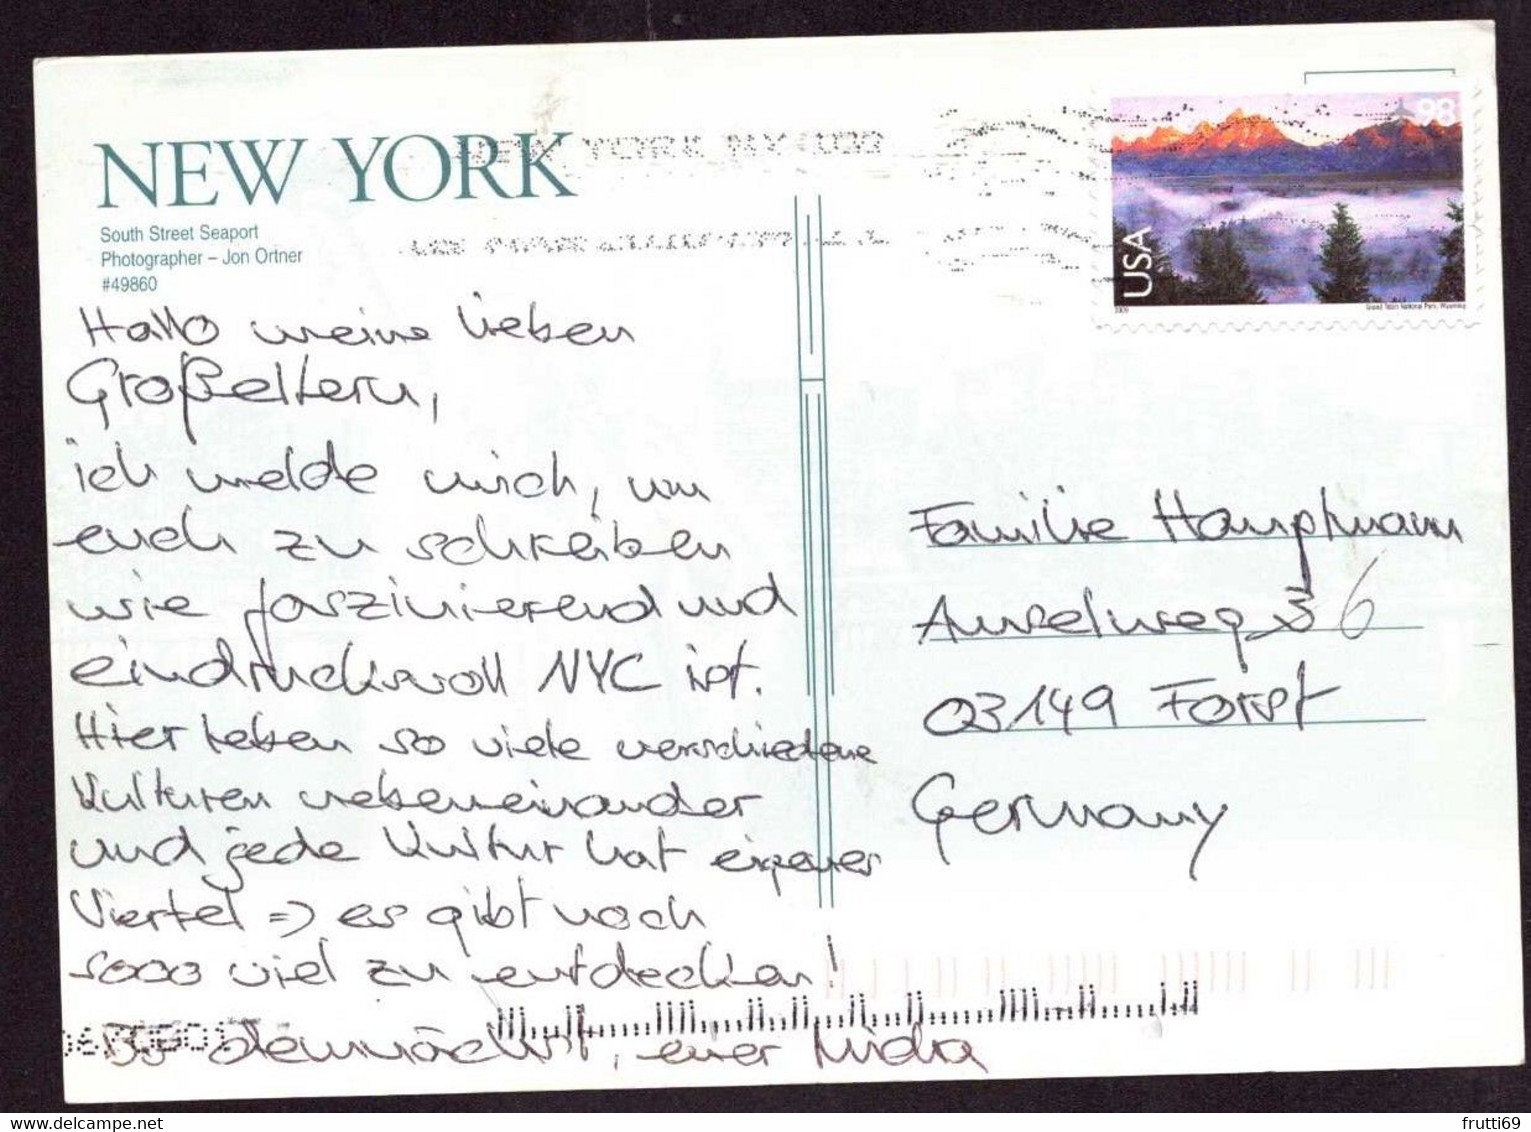 NEW YORK
South Street Seaport
Photographer – Jon Ortner
#49860
NEW YORK NY 100
98
USA
2009
Grand Teton National Park, Wyoming
Hallo meine lieben
Großeltern,
ich melde mich, um
euch zu schreiben
wie faszinierend und
eindrucksvoll NYC ist.
Hier leben so viele verschiedene
Kulturen nebeneinander
und jede Kultur hat eigenes
Viertel => es gibt noch
sooo viel zu entdecken!
Bis demnächst, euer
Familie Hauptmann
Amselweg 6
03149 Forst
Germany
frutti69